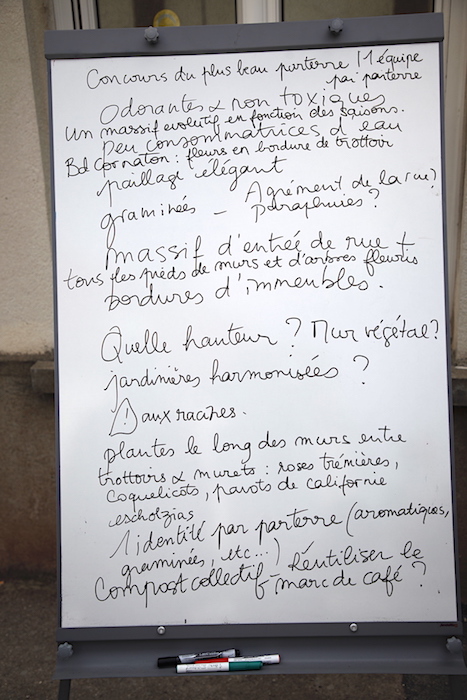 Concours du plus beau parterre / 1 équipe
par parterre
Odorantes & non toxiques
Un massif évolutif en fonction des saisons.
Peu consommatrices d'eau
Bd Cornaton : fleurs en bordure de trottoir
paillage élégant
graminées - Agrément de la rue?
parapluies?
massif d'entrée de rue +
tous les pieds de murs et d'arbres fleuris
bordures d'immeubles.
Quelle hauteur ? Mur végétal?
jardinières harmonisées ?
⚠ aux racines.
plantes le long des murs entre
trottoirs & murets : roses trémières,
coquelicots, pavots de californie
escholzias
1 identité par parterre (aromatiques,
graminées, etc...)
Compost collectif - Réutiliser le
marc de café ?